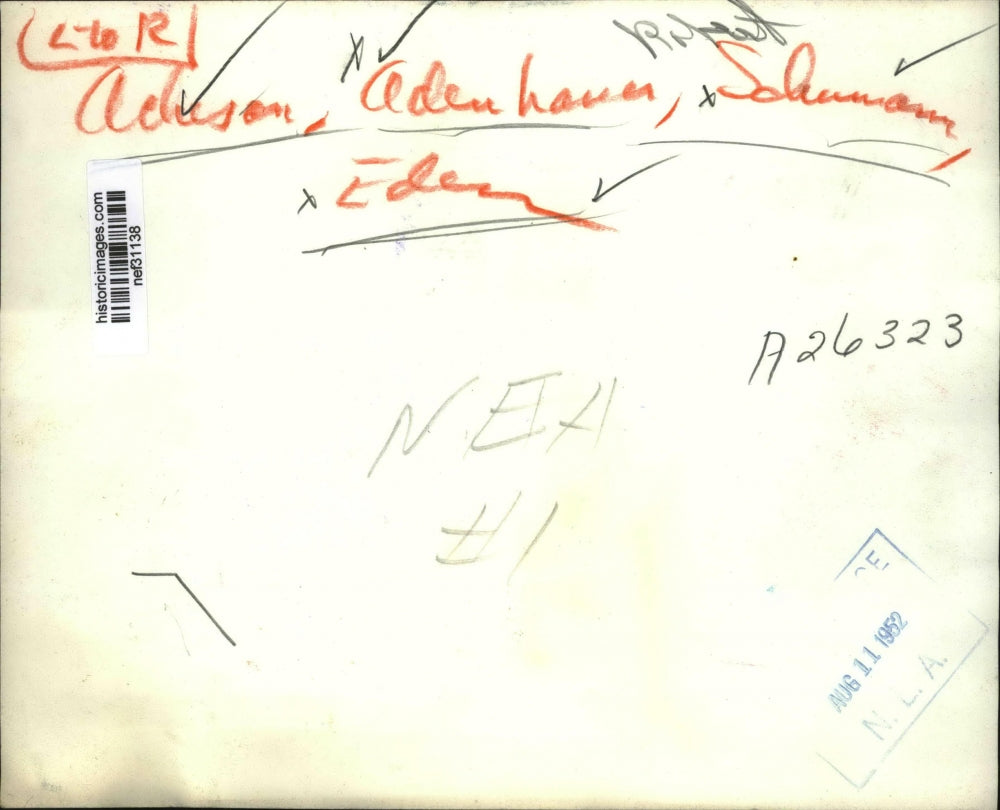 (L to R)
Robert
Acheson, Adenhauer, Schumann,
Eden
historicimages.com
nef31138
A26323
NEA
#1
AUG 11 1952